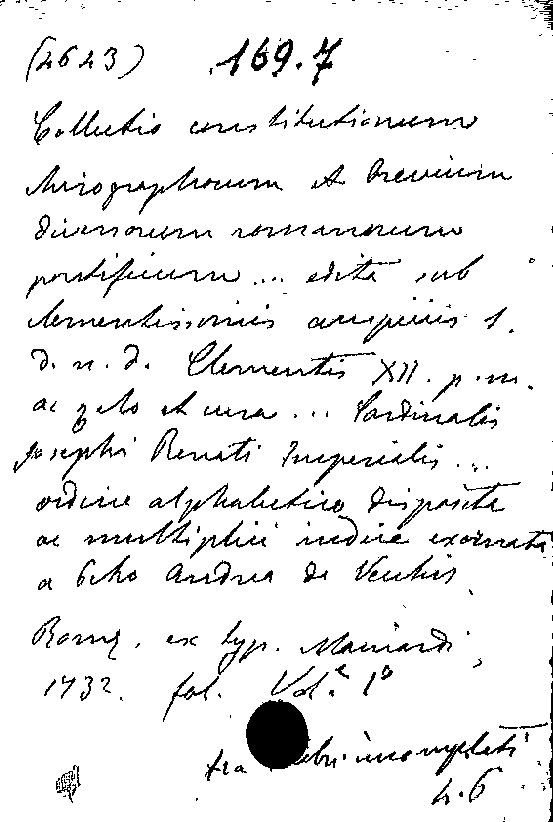 (4643) 169.7
Collectio constitutionum
chirographorum et brevium
diversorum romanorum
pontificum ... edita sub
clementissimis auspiciis s.
d. n. d. Clementis XII. p. m.
ac zelo et cura ... Cardinalis
Josephi Renati Imperialis ...
ordine alphabetico disposita
ac multiplici indice exornata
a Petro Andrea de Vecchis
Romę, ex typ. Mainardi,
1732. fol. Vol.e 1o
tra libri incompleti
4.6